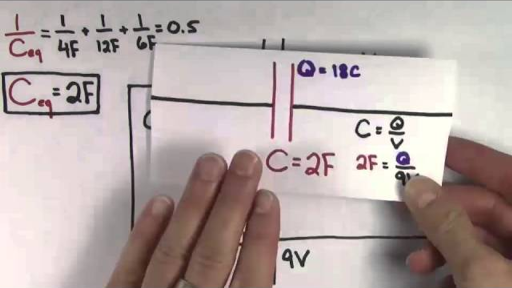 1/C_eq = 1/4F + 1/12F + 1/6F = 0.5
C_eq = 2F
Q = 18C
C = Q/V
C = 2F
2F = Q/9V
9V